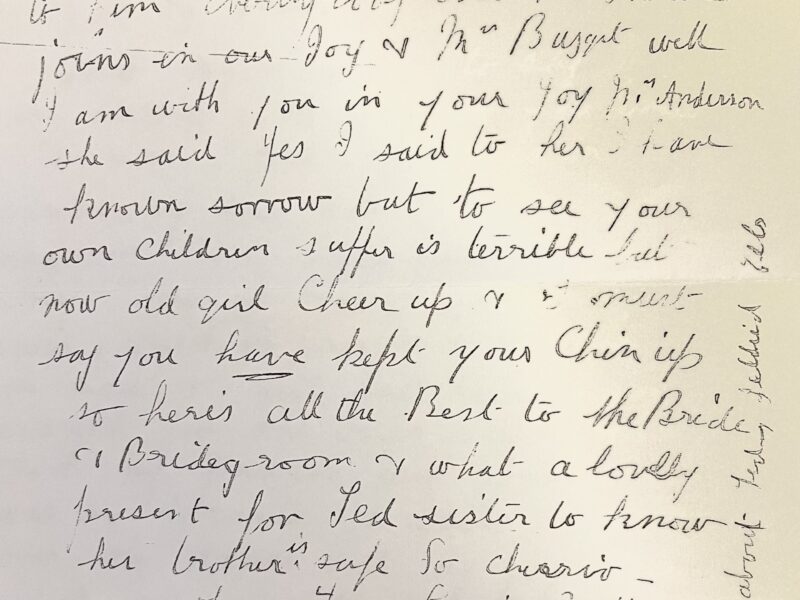 to him every
joins in our Joy & Mrs Buzget well
I am with you in your Joy Mrs Anderson
she said Yes I said to her I have
known sorrow but to see your
own Children suffer is terrible but
now old girl Cheer up & I must
say you have kept your Chin up
so heris all the Best to the Bride
& Bridegroom & what a lovely
present for Ted sister to know
her brother is safe So cheerio -
about Ted